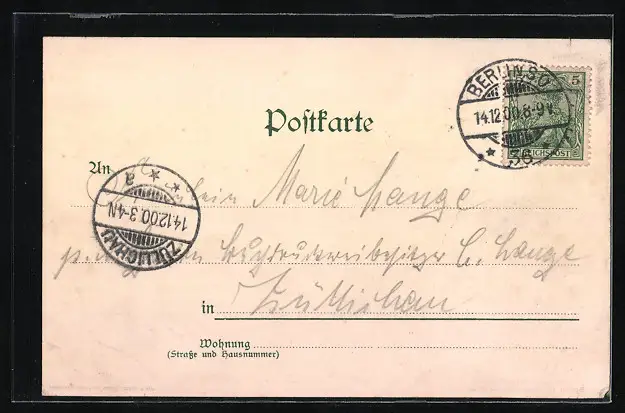 BERLIN S.O.
14.12.00.8-9V.
* 36
5
REICHSPOST
Postkarte
An Fräulein Marie Lange
Buchdruckereibesitzer C. Lange
14.12.00.3-4N
ZÜLLICHAU
in Züllichau
Wohnung
(Straße und Hausnummer)